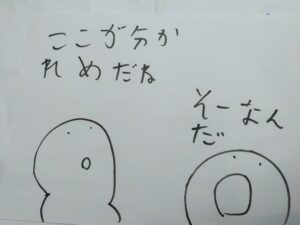 ここが分か
れめだね
そーなん
だ